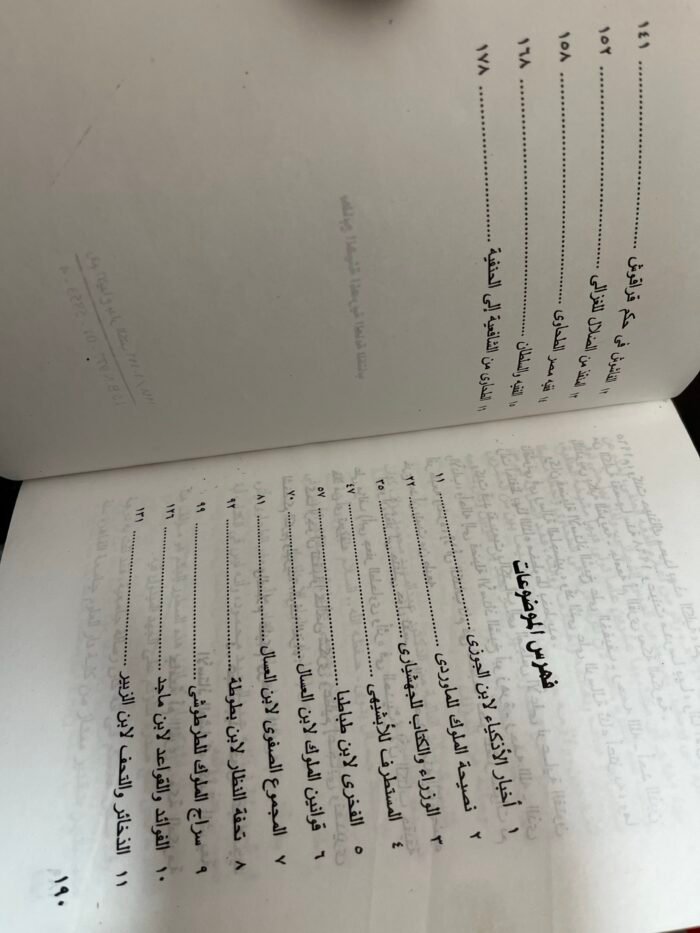 فهرس الموضوعات
١ أخبار الأذكياء لابن الجوزى ........ ١١
٢ نصيحة الملوك للماوردى ........ ٢٢
٣ الوزراء والكتاب للجهشيارى ........ ٣٥
٤ المستطرف للأبشيهى ........ ٤٧
٥ الفخرى لابن طباطبا ........ ٥٧
٦ قوانين الملوك لابن العسال ........ ٧٠
٧ المجموع الصفوى لابن العسال ........ ٨١
٨ تحفة النظار لابن بطوطة ........ ٩٢
٩ سراج الملوك للطرطوشى ........ ٩٩
١٠ الفوائد والقواعد لابن ماجد ........ ١٢٦
١١ الذخائر والتحف لابن الزبير ........ ١٣١
١٩٠
١٢ الفاشوش فى حكم قراقوش ........ ١٤١
١٣ المنقذ من الضلال للغزالى ........ ١٥٢
١٤ فقيه مصر الطحاوى ........ ١٥٨
١٥ الفقيه والسلطان ........ ١٦٨
١٦ الطحاوى من الشافعية إلى الحنفية ........ ١٧٨